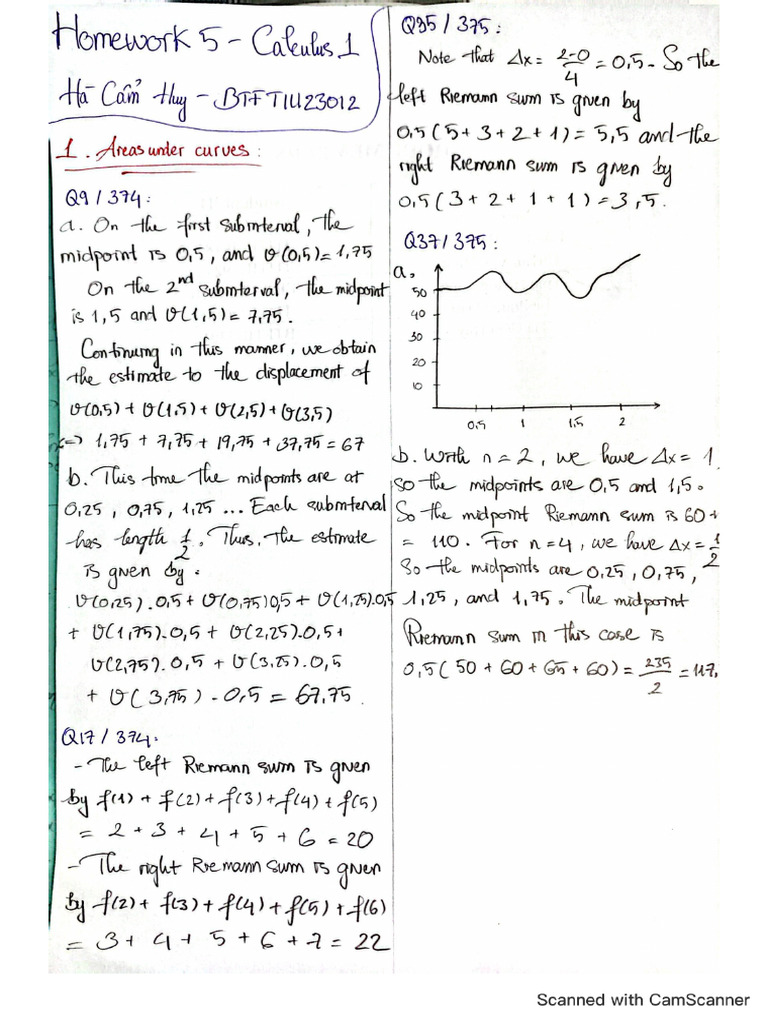 Homework 5 - Calculus 1
Hà Cẩm Huy - BTFTIU23012
1. Areas under curves:
Q9/374:
a. On the first subinterval, the
midpoint is 0,5, and v(0,5)= 1,75
On the 2nd subinterval, the midpoint
is 1,5 and v(1,5)= 7,75.
Continuing in this manner, we obtain
the estimate to the displacement of
v(0,5)+ v(1,5)+ v(2,5)+v(3,5)
=> 1,75 + 7,75 + 19,75 + 37,75 = 67
b. This time the midpoints are at
0,25, 0,75, 1,25 ... Each subinterval
has length 1/2. Thus, the estimate
is given by.
v(0,25).0,5+ v(0,75)0,5+ v(1,25).0,5
+ v(1,75).0,5+ v(2,25).0,5+
v(2,75).0,5 + v(3,25).0,5
+ v(3,75).0,5 = 67,75.
Q17/374:
- The left Riemann sum is given
by f(1)+ f(2)+f(3)+f(4)+f(5)
= 2+3+4+5+6=20
- The right Riemann sum is given
by f(2)+ f(3)+f(4)+f(5)+f(6)
= 3+4+5+6+7=22
Q35/375:
Note that Δx= 2-0/4 = 0,5. So the
left Riemann sum is given by
0,5(5+3+2+1)=5,5 and the
right Riemann sum is given by
0,5(3+2+1+1)=3,5.
Q37/375:
a,
50
40
30
20
10
0,5 1 1,5 2
b. With n=2, we have Δx= 1
so the midpoints are 0,5 and 1,5.
So the midpoint Riemann sum is 60+
= 110. For n=4, we have Δx=1/2
So the midpoints are 0,25, 0,75,
1,25, and 1,75. The midpoint
Riemann sum in this case is
0,5(50+60+65+60)= 235/2 =117,
Scanned with CamScanner